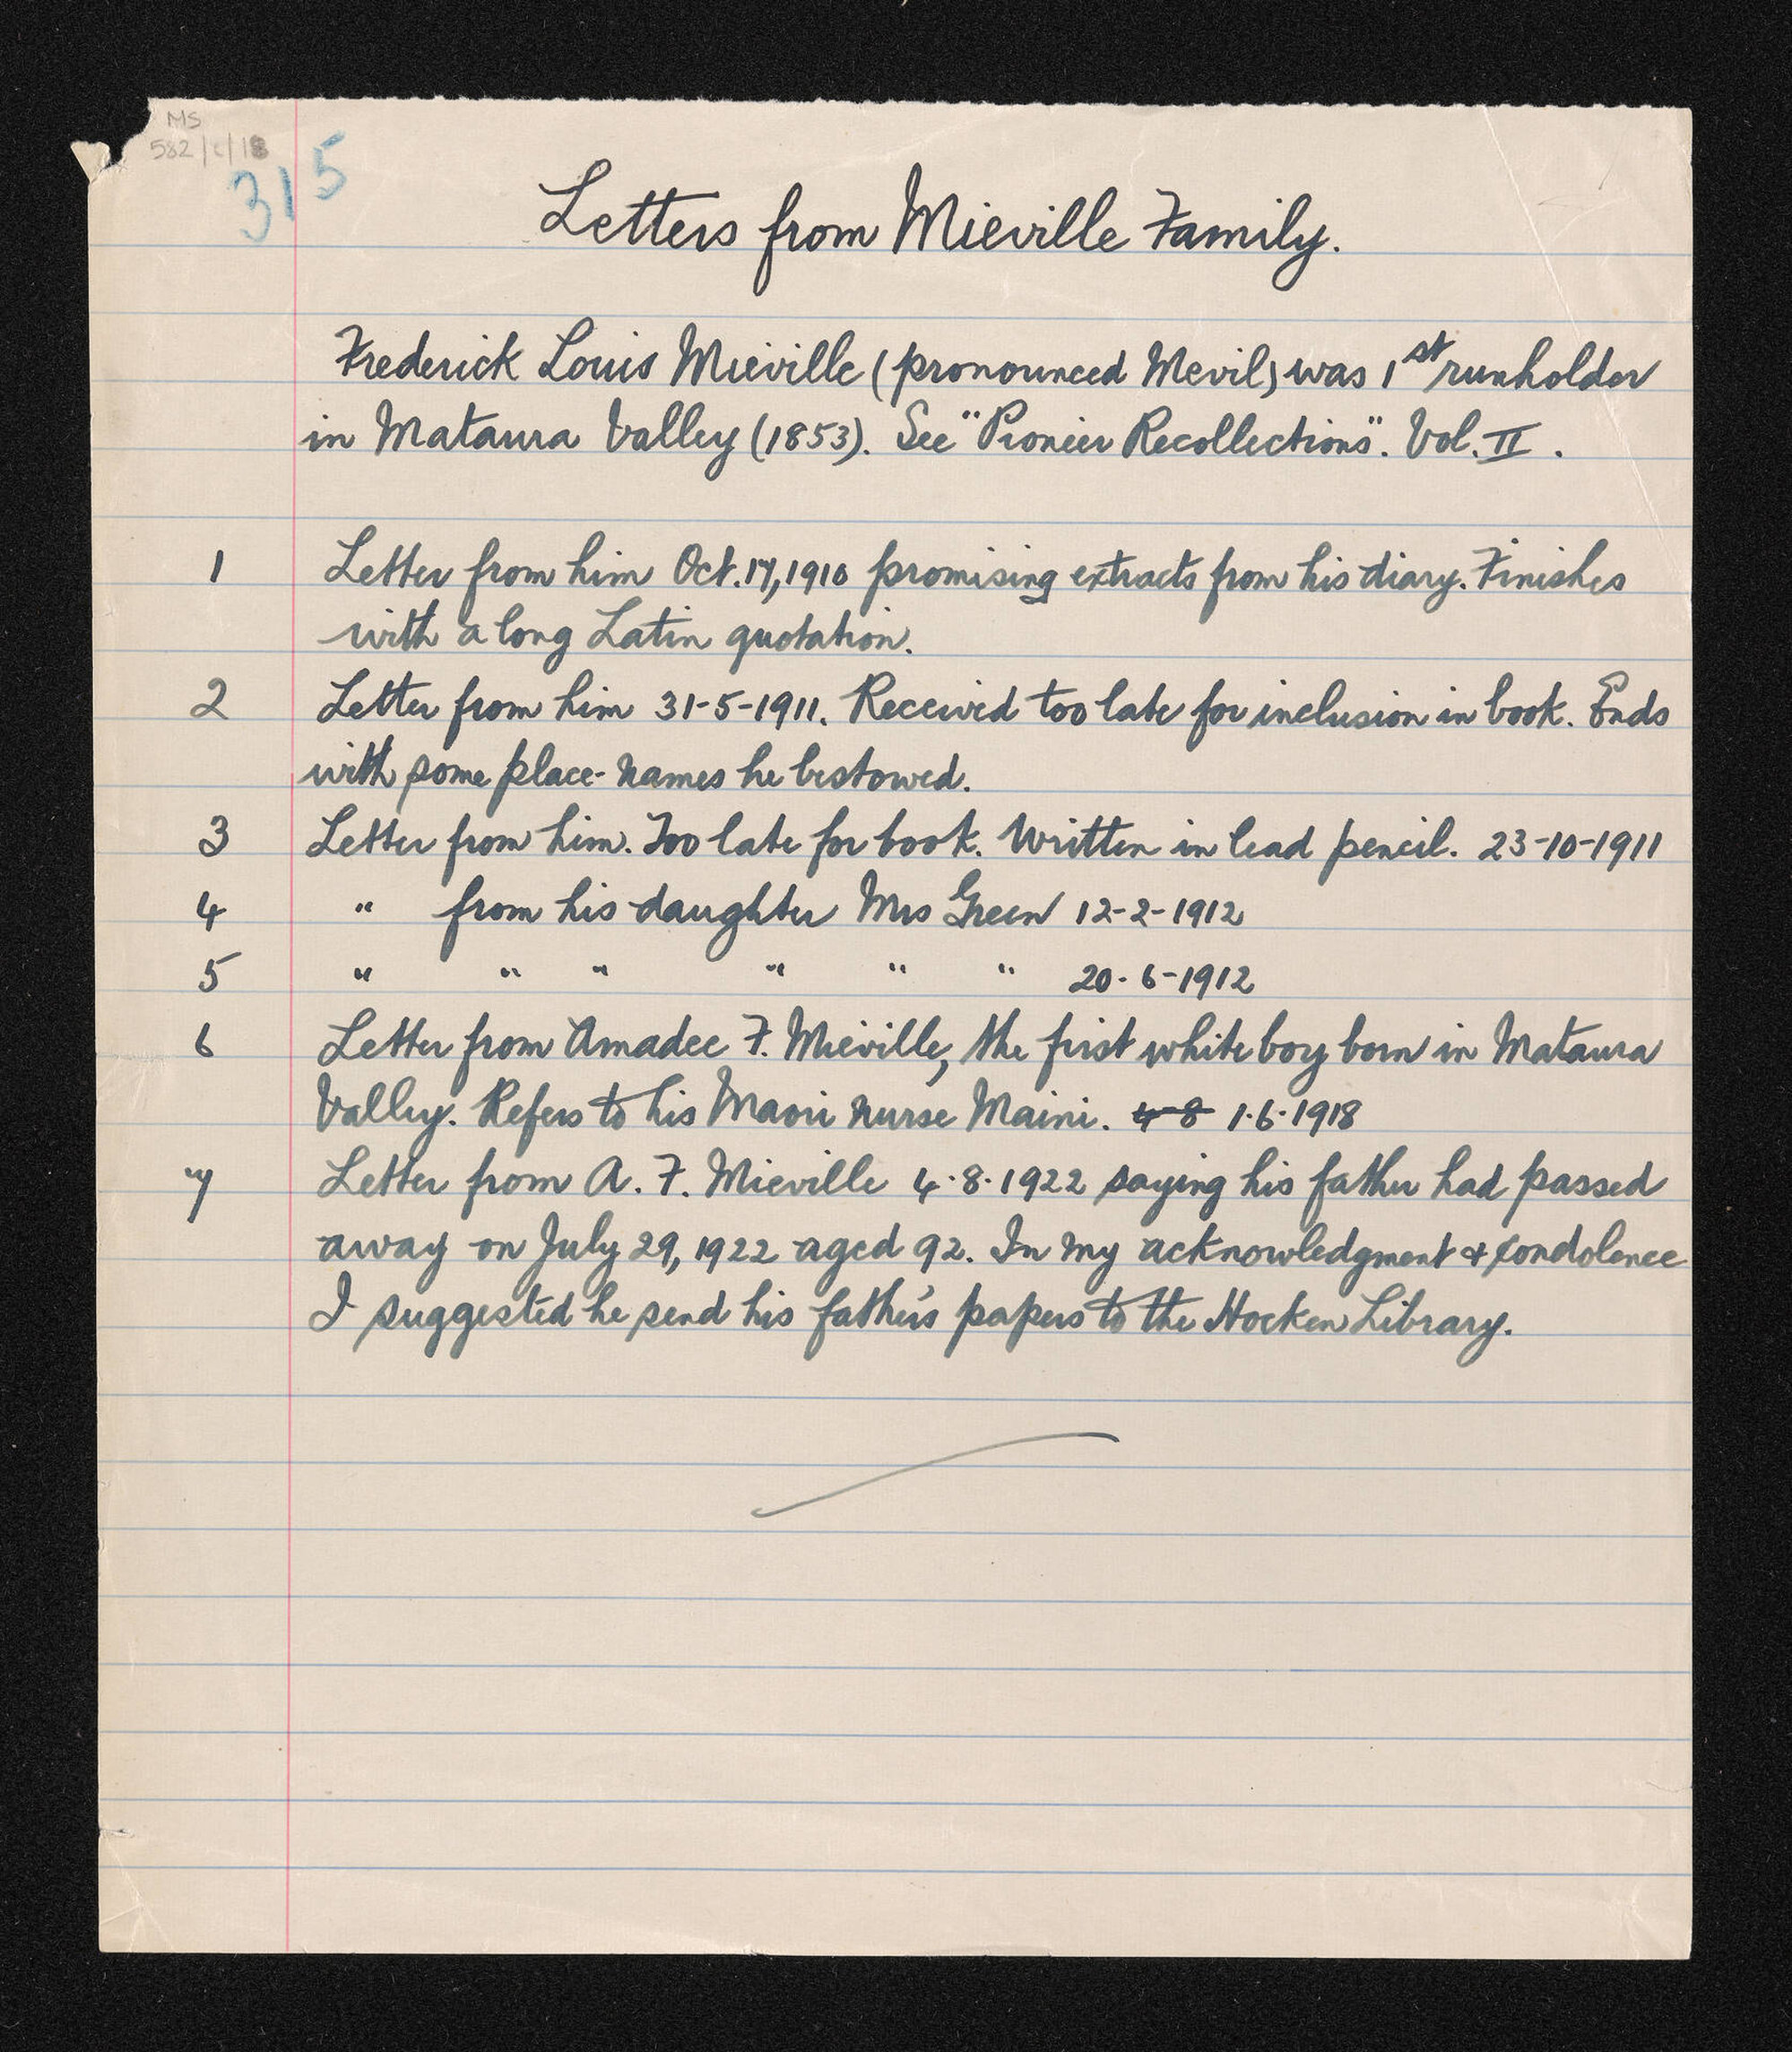 MS
582/c/18
315
Letters from Mieville Family.
Frederick Louis Mieville (pronounced Mevil) was 1st runholder
in Mataura Valley (1853). See "Pioneer Recollections". Vol. II.
1 Letter from him Oct. 17, 1910 promising extracts from his diary. Finishes
with a long Latin quotation.
2 Letter from him 31-5-1911. Received too late for inclusion in book. Ends
with some place-names he bestowed.
3 Letter from him. Too late for book. Written in lead pencil. 23-10-1911
4 " from his daughter Mrs Green 12-2-1912
5 " " " " " " 20-6-1912
6 Letter from Amadee F. Mieville, the first white boy born in Mataura
Valley. Refers to his Maori nurse Maini. 4-8 1.6.1918
7 Letter from A. F. Mieville 4.8.1922 saying his father had passed
away on July 29, 1922 aged 92. In my acknowledgment & condolence
I suggested he send his father's papers to the Hocken Library.